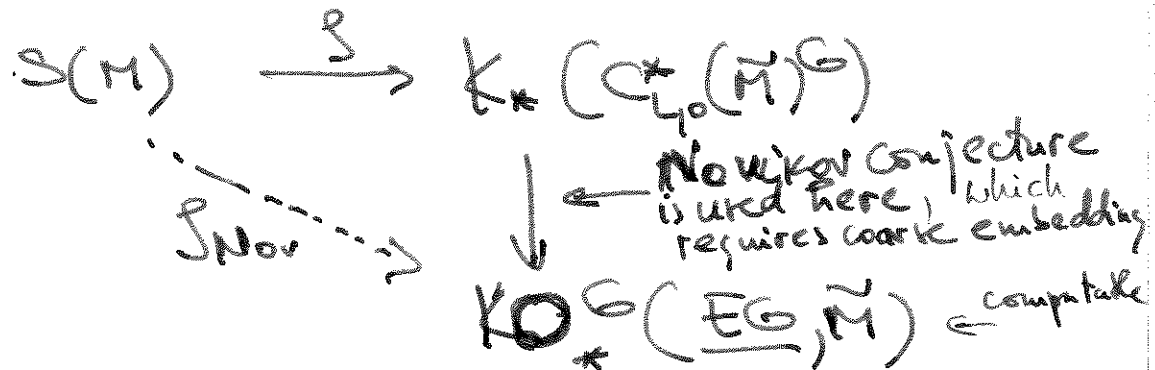 S(M) ρ K_* (C*_{L,0}(M̃)^G)
Novikov Conjecture
is used here, which
requires coarse embedding
ρ_Nov
KO_*^G (EG, M̃) ← computable